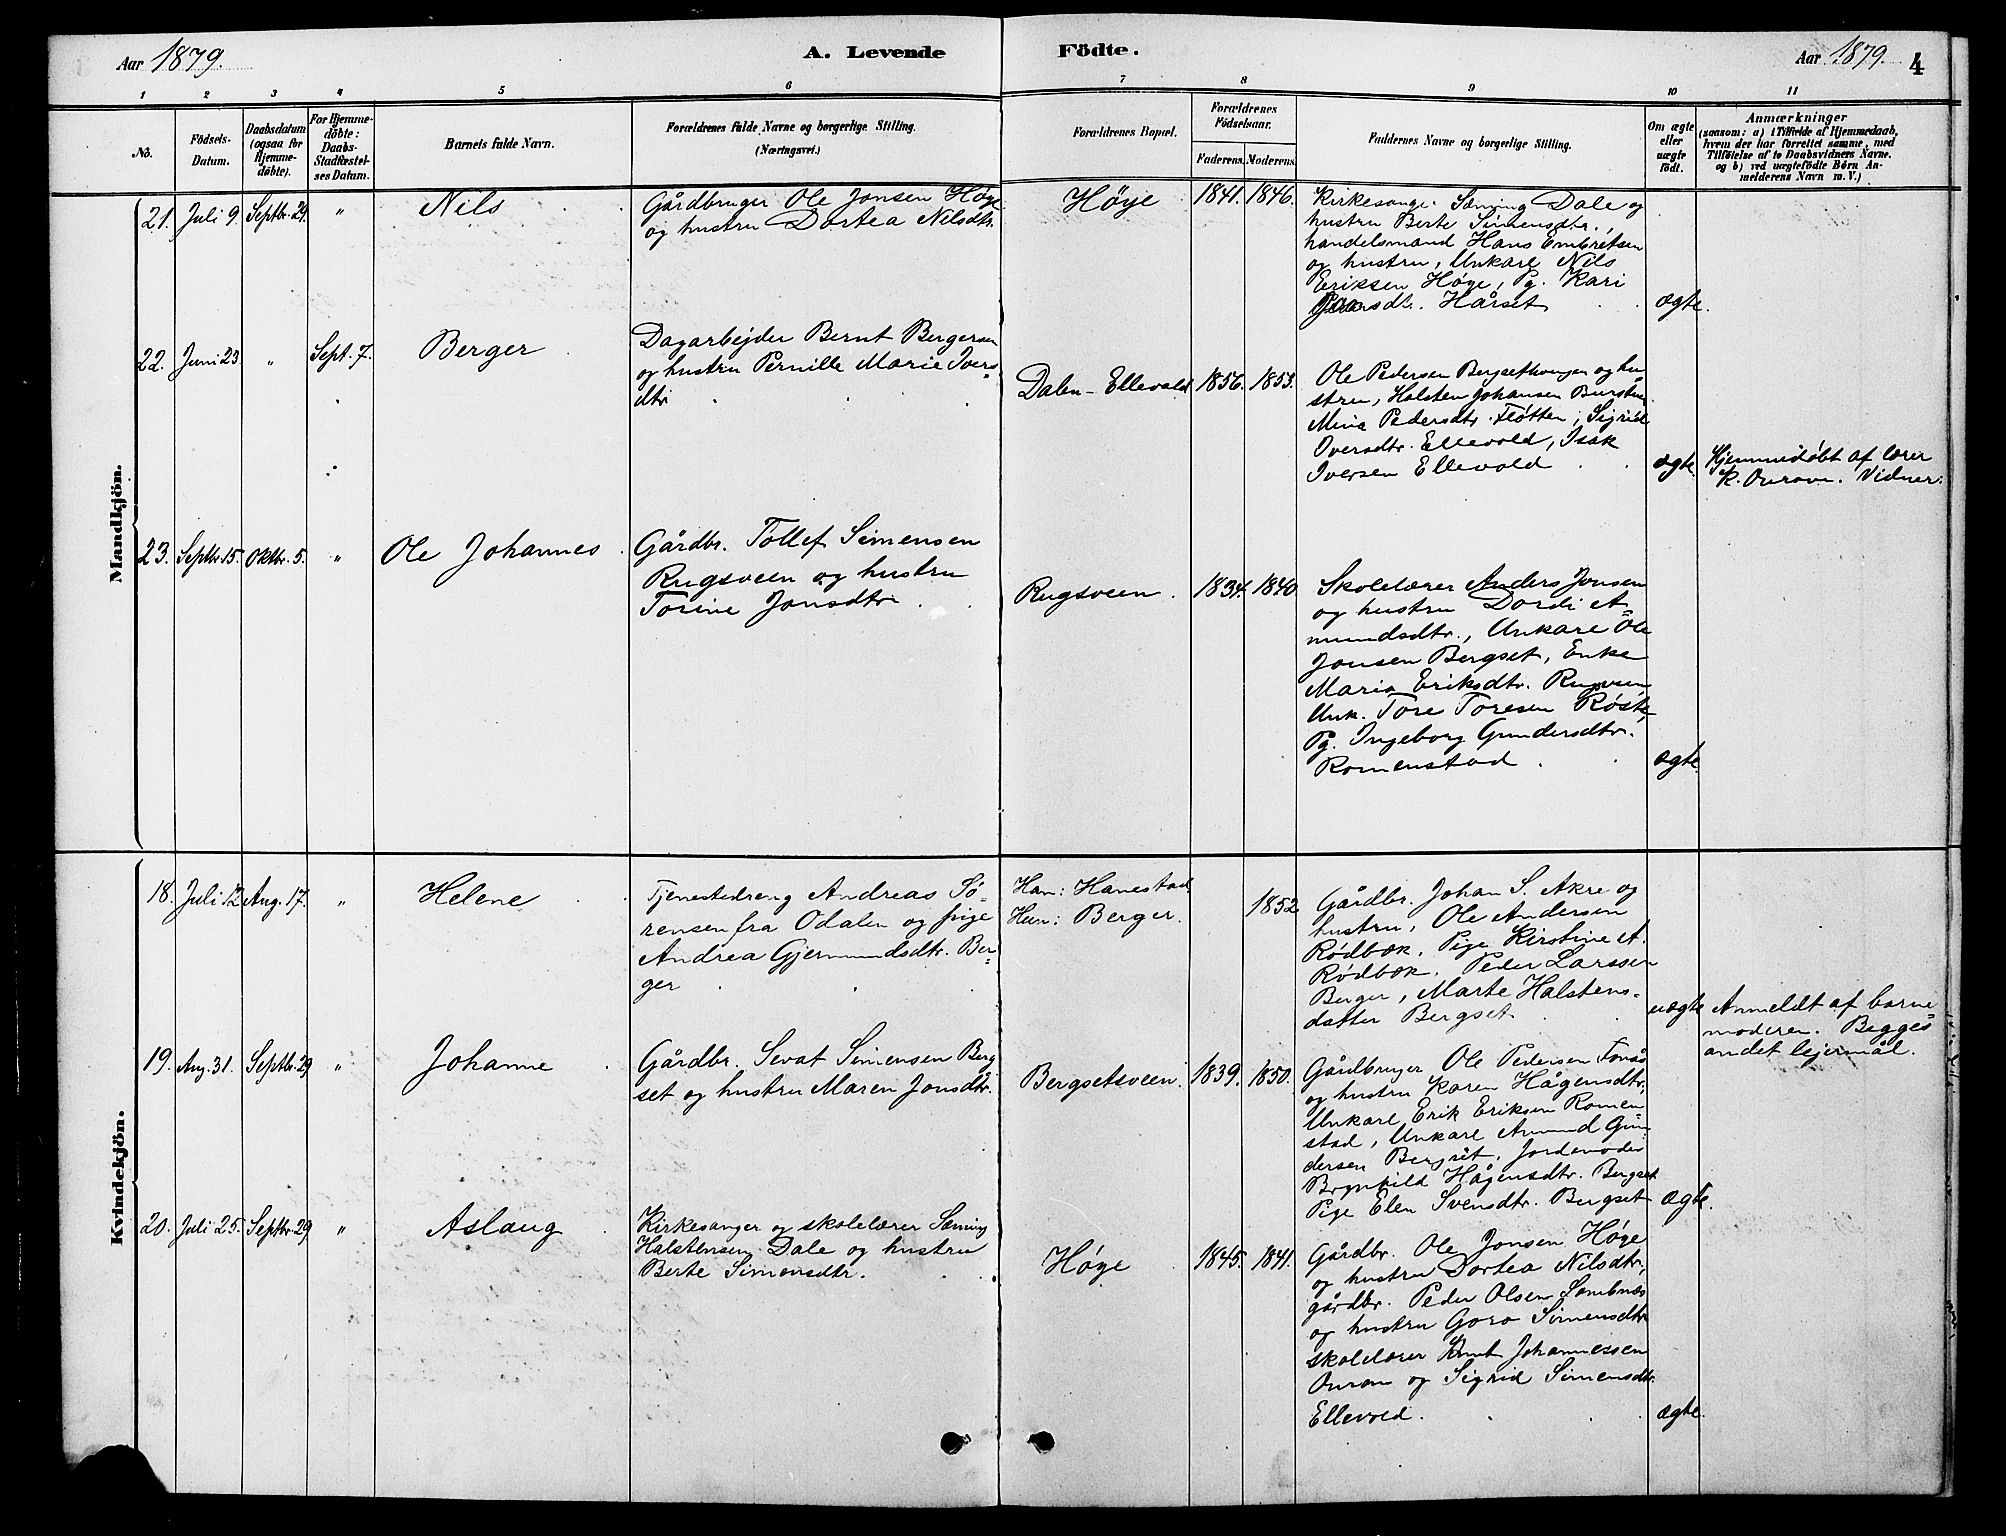 Aar 1879. A. Levende Födte. Aar 1879. 4
1 2 3 4 5 6 7 8 9 10 11
No.
Födsels-
Datum.
Daabsdatum
(ogsaa for
Hjemme-
døbte).
For Hjemme-
døbte:
Daabs-
Stadfæstel-
ses Datum.
Barnets fulde Navn.
Forældrenes fulde Navne og borgerlige Stilling.
(Næringsvei.)
Forældrenes Bopæl.
Forældrenes
Fødselsaar.
Faderens. Moderens.
Faddernes Navne og borgerlige Stilling.
Om ægte
eller
uægte
født.
Anmærkninger
(saasom: a) i Tilfælde af Hjemmedaab,
hvem der har forrettet samme, med
Tilføielse af to Daabsvidners Navne.
og b) ved uægtefødte Börn An-
melderens Navn m. V.)
Mandkjön.
21. Juli 9. Septbr. 29. " Nils
Gårdbruger Ole Jonsen Høye
og hustru Dortea Nilsdtr.
Høye 1841. 1846.
Kirkesanger Sæming Dale og
hustru Berte Simensdtr.,
handelsmand Hans Embretsen
og hustru, Unkarl Nils
Eriksen Høye, Pg. Kari
Hårset
ægte.
22. Juni 23. " Sept. 7. Berger
Dagarbejder Bernt Bergersen
og hustru Pernille Marie Ivers=
dtr.
Dalen-Ellevold 1856. 1853.
Ole Pedersen og hu=
stru, Halsten Johansen
Mina Pedersdtr. Fløtten, Sigrid
Iversdtr. Ellevold, Isak
Iversen Ellevold
ægte.
Hjemmedøbt af lærer
K. Ouravn. Vidner:
23. Septbr. 15. Oktbr. 5. " Ole Johannes
Gårdbr. Tollef Simensen
Rugsveen og hustru
Torine Jonsdtr.
Rugsveen. 1834. 1840.
Skolelærer Anders Jonsen
og hustru Dordi A=
mundsdtr., Unkarl Ole
Jonsen Bergset, Enke
Maria Eriksdtr. Rugsveen
Unk. Tore Toresen Røste,
Pg. Ingeborg Gundersdtr.
Romenstad
ægte.
Kvindekjön.
18. Juli 12 Aug. 17. " Helene
Tjenestedreng Andreas Sö=
rensen fra Odalen og pige
Andrea Gjermundsdtr. Ber=
ger
Han: Hanestad
Hun: Berger.
1852
Gårdbr. Johan S. Akre og
hustru, Ole Andersen
Rödbæk. Pige Kirstine A.
Rödbæk. Peder Larssen
Berger, Marte Halstens=
datter Bergset.
uægte
Anmeldt af barne=
moderen. Begges
andet lejermål.
19. Aug. 31. Septbr. 29 " Johanne
Gårdbr. Sevat Simensen Berg=
set og hustru Maren Jonsdtr.
Bergsetsveen. 1839. 1850.
Gårdbruger Ole Pedersen Fonås
og hustru Karen Hågensdtr.,
Unkarl Erik Eriksen Romen=
stad, Unkarl Amund Gun=
dersen Bergset, Jordemoder
Brynhild Hågensdtr. Bergset
Pige Elen Svensdtr. Bergset
ægte.
20. Juli 25. Septbr. 29 " Aslaug
Kirkesanger og skolelærer Sæming
Halstensen Dale og hustru
Berte Simensdtr.
Høye 1845. 1841.
Gårdbr. Ole Jonsen Høye
og hustru Dortea Nilsdtr.,
gårdbr. Peder Olsen Sambnæs
og hustru Goro Simensdtr.
skolelærer Knut Johannessen
Ouravn og Sigrid Simensdtr.
Ellevold.
ægte.